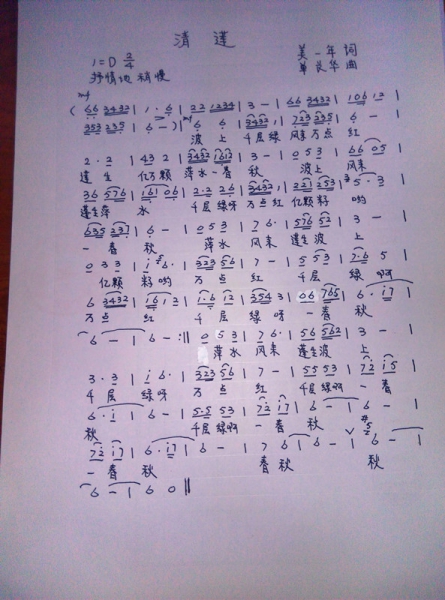 清莲
1=D 2/4 美一年 词
抒情地 稍慢 单长华 曲
mf
(66 3432 | 1·6 | 22 1234 | 3 - | 66 3432 | 106 12 |
353 235 | 6 - ) | mf 6 6 | 3432 1 | 723 235 | 6 - |
波 上 千层绿 风来万点 红
2·2 | 43 2 | 3432 1612 | 3 - | 053 | 66 05 |
莲 生 亿万颗 萍水一春 秋 波上 风来
36 576 | 161 06 | 2·2 26 | 3432 1 | 221 253 | 5·3 |
莲生萍 水 千层绿呀 万点红 亿颗籽 哟
635 237 | 6 - | 053 | 76· | 575 52 | 3 - |
一春 秋 萍水 风来 莲生波 上
033 | i 6· | 323 56 | 7 - | 5553 | 7·6 5 |
亿颗 籽哟 万点 红 千层 绿啊
6 3432 | 16 12 | 1·6 12 | 3543 | 06 765 | 6·i7 |
万点 红 千层 绿呀 一春 秋
6 - | 6 - :‖ 053 | 76· | 56 562 | 3 - |
萍水 风来 莲生波 上
3·3 | i6· | 323 56 | 7 - | 55 53 | 72 i5 |
千层 绿呀 万点 红 千层绿啊 一春
6·i | 6 - | 5·5 53 | 72 i7 | 6 - | 6 - |
秋 千层绿啊 一春 秋
72 i7 | 6·i7 | 6 - | 7 6 | 6 - | #5 6 - |
一春 秋 春秋 秋
6 - | 6 0 ‖